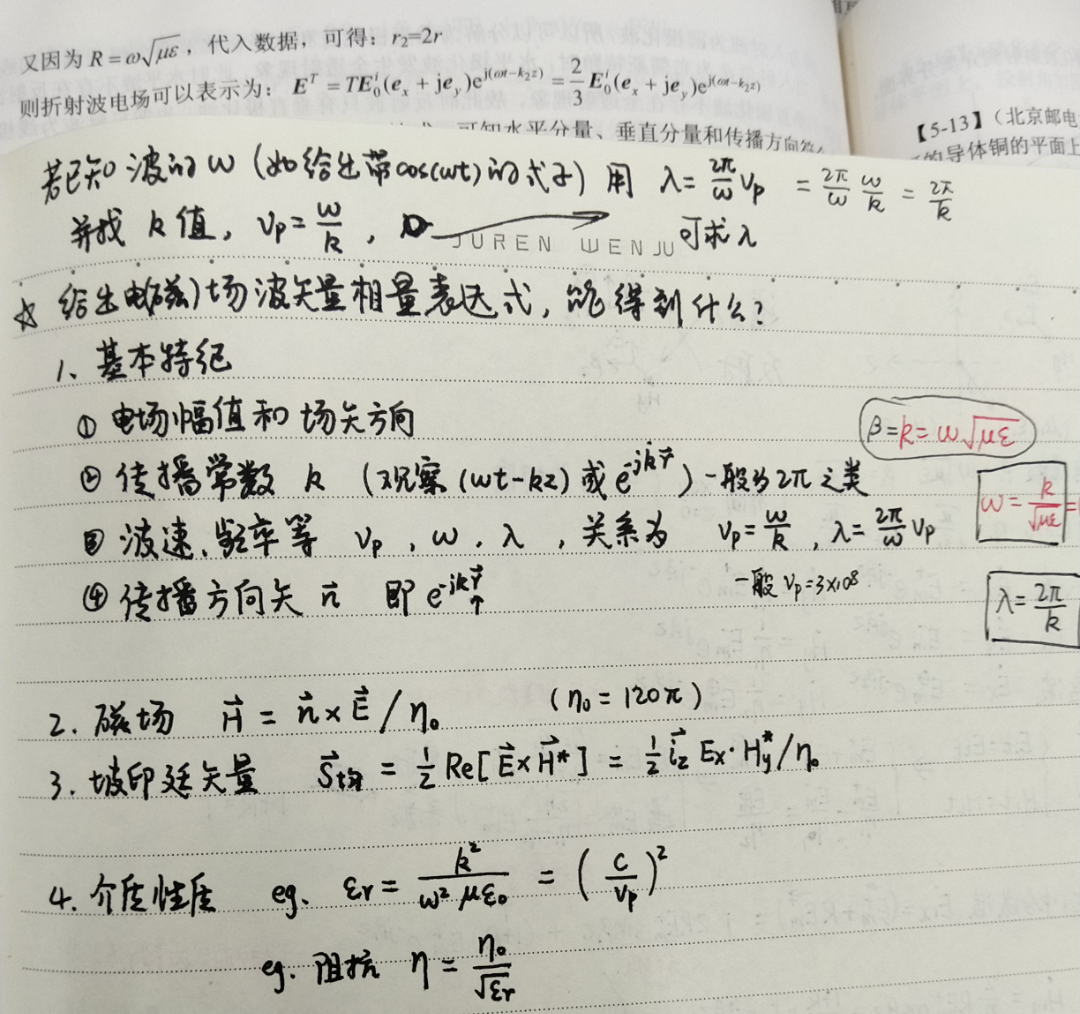 又因为 R = ω√με，代入数据，可得：r₂=2r
则折射波电场可以表示为：E^T = TE₀^i(e_x + je_y)e^{j(ωt−k₂z)} = 2/3 E₀^i(e_x + je_y)e^{j(ωt−k₂z)}
可知水平分量、垂直分量和传播方向
【5-13】（北京邮电
的导体铜的平面上
若已知波的 ω (如给出带cos(ωt)的式子) 用 λ = 2π/ω v_p = 2π/ω ω/k = 2π/k
并找 k 值, v_p = ω/k , 可求 λ
JUREN WENJU
☆ 给出电(磁)场波矢量相量表达式, 能得到什么?
1、基本特征
① 电场幅值和场矢方向
② 传播常数 k (观察 (ωt-kz) 或 e^{-jkr⃗}) 一般为2π之类
β = k = ω√με
③ 波速、频率等 v_p , ω , λ , 关系为 v_p = ω/k , λ = 2π/ω v_p
ω = k/√με =
一般 v_p = 3×10⁸
④ 传播方向矢 n⃗ 即 e^{-jkr⃗} ↑
λ = 2π/k
2. 磁场 H⃗ = n⃗ × E⃗ / η₀ (η₀ = 120π)
3. 坡印廷矢量 S⃗均 = 1/2 Re[E⃗ × H⃗*] = 1/2 i⃗_z E_x · H_y* / η₀
4. 介质性质 eg. εr = k²/ω²με₀ = (c/v_p)²
eg. 阻抗 η = η₀/√εr